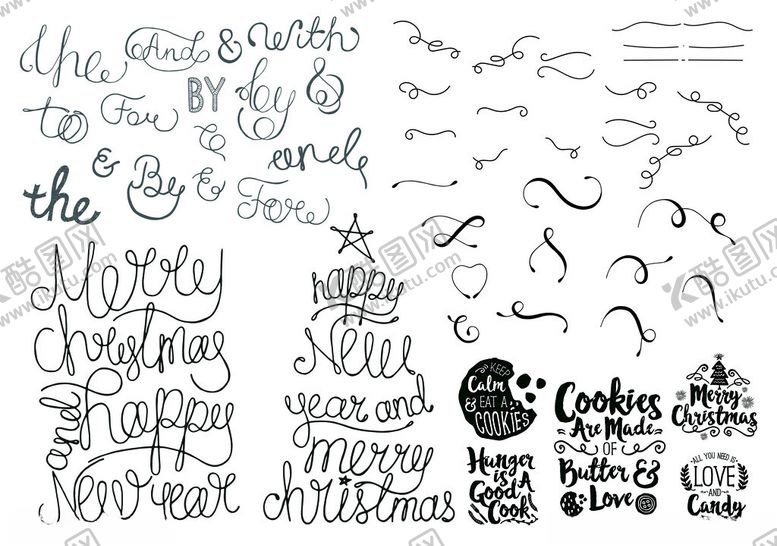 the And & with
BY by &
to For
&
and
the & By & Fore
Merry
christmas
and happy
New year
happy
New
year and
merry
christmas
KEEP
CALM
& EAT A
COOKIES
Hunger
is
Good A
Cook
Cookies
Are Made
OF
Butter &
Love
Merry
Christmas
ALL YOU NEED IS
LOVE
AND
Candy
酷图网
www.ikutu.com